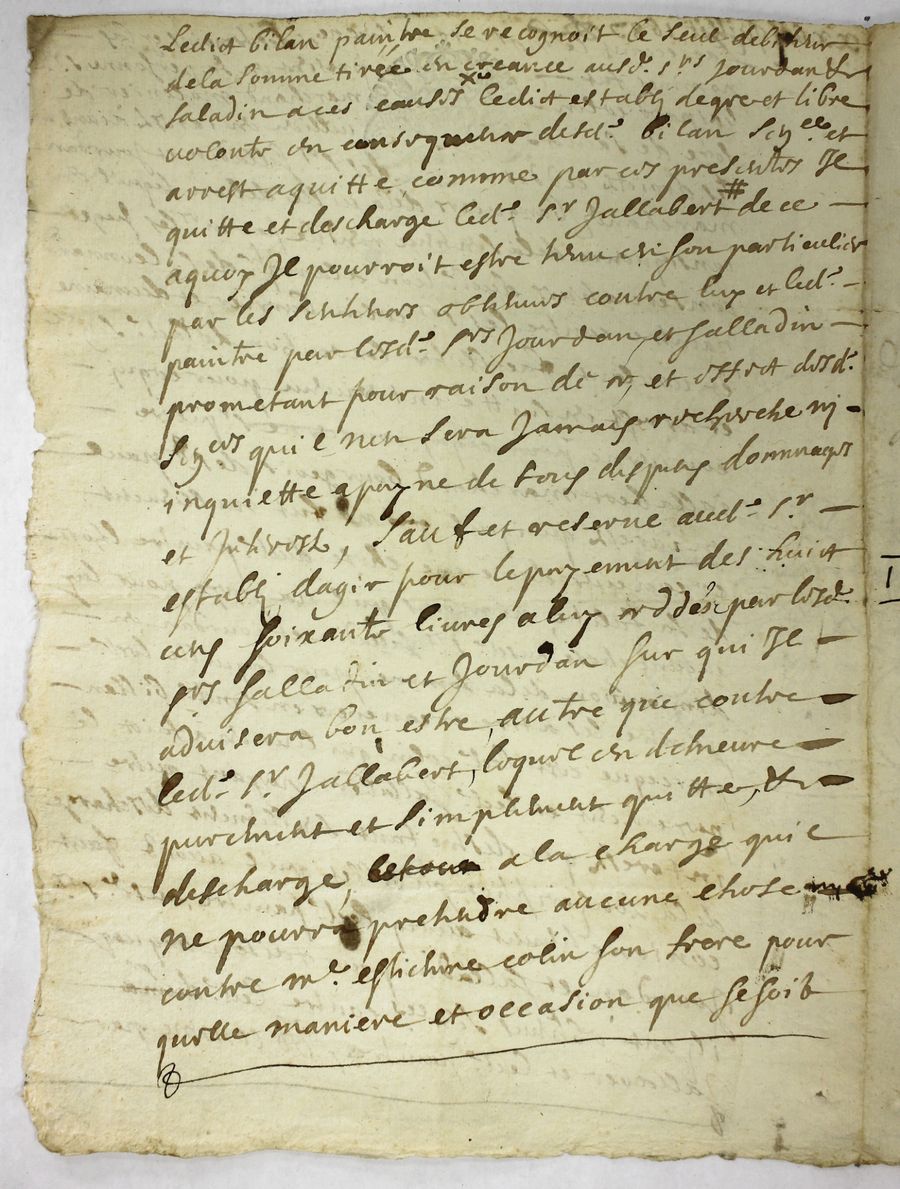 Ledict bilan paintre se recognoit le seul debiteur
de la somme tirée en creance ausd.ᵉ sʳˢ Jourdan &
saladin a ces causes ledict establj de gre et libre
volonte en consequence desd.ᵉ bilan Snᶜᵉ et
arrest a quitte comme par ces presentes Il
quitte et descharge led.ᵉ sʳ Jallabert # de ce —
a quoy Il pourroit estre tenu en son particulier
par les sentences obtenues contre luy et led.ᵉ —
paintre par lesd.ᵉ sʳˢ Jourdan, et salladin —
prometant pour raison de ce, et effect desd.ᵉ
Snᶜᵉˢ quil nen sera Jamais recherche nj -
inquiette a peyne de tous despens dommages
et Interestz, sauf et reserve aud.ᵉ sʳ —
establj dagir pour le payement des huict
cens soixante livres a luy ceddés par lesd.ᵉ
sʳˢ salladin et Jourdan sur qui Il —
advisera bon estre, autre que contre —
led.ᵉ sʳ Jallabert, lequel en demeure —
purement et simplement quitte, & —
descharge, a la charge quil
ne pourra pretendre aucune chose
contre mᵉ estienne colin son frere pour
quelle maniere et occasion que se soit